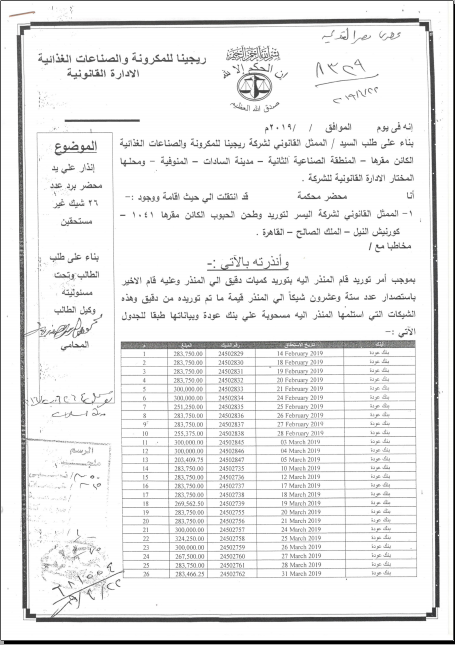 ريجينا للمكرونة والصناعات الغذائية
الادارة القانونية
٨٣٣٩
إنه فى يوم الموافق / / ٢٠١٩م
بناء على طلب السيد / الممثل القانوني لشركة ريجينا للمكرونة والصناعات الغذائية
الكائن مقرها – المنطقة الصناعية الثانية – مدينة السادات – المنوفية – ومحلها
المختار الادارة القانونية للشركة .
أنا محضر محكمة قد انتقلت الي حيث اقامة ووجود :-
١- الممثل القانوني لشركة اليسر لتوريد وطحن الحبوب الكائن مقرها ١٠٤١ –
كورنيش النيل – الملك الصالح – القاهرة .
مخاطبا مع /
وأنذرته بالآتي :-
بموجب أمر توريد قام المنذر اليه بتوريد كميات دقيق الي المنذر وعليه قام الاخير
باستصدار عدد ستة وعشرون شيكاً الي المنذر قيمة ما تم توريده من دقيق وهذه
الشيكات التي استلمها المنذر اليه مسحوبة علي بنك عودة وبياناتها طبقا للجدول
الآتي :-
م المبلغ رقم الشيك تاريخ الاستحقاق البنك
1 283,750.00 24502829 14 February 2019 بنك عودة
2 283,750.00 24502830 18 February 2019 بنك عودة
3 283,750.00 24502831 19 February 2019 بنك عودة
4 283,750.00 24502832 20 February 2019 بنك عودة
5 300,000.00 24502833 21 February 2019 بنك عودة
6 300,000.00 24502834 24 February 2019 بنك عودة
7 251,250.00 24502835 25 February 2019 بنك عودة
8 283,750.00 24502836 26 February 2019 بنك عودة
9 283,750.00 24502837 27 February 2019 بنك عودة
10 255,375.00 24502838 28 February 2019 بنك عودة
11 300,000.00 24502845 03 March 2019 بنك عودة
12 300,000.00 24502846 04 March 2019 بنك عودة
13 203,409.75 24502847 05 March 2019 بنك عودة
14 283,750.00 24502735 10 March 2019 بنك عودة
15 283,750.00 24502736 12 March 2019 بنك عودة
16 283,750.00 24502737 17 March 2019 بنك عودة
17 283,750.00 24502738 18 March 2019 بنك عودة
18 269,562.50 24502739 19 March 2019 بنك عودة
19 283,750.00 24502755 20 March 2019 بنك عودة
20 283,750.00 24502756 21 March 2019 بنك عودة
21 300,000.00 24502757 24 March 2019 بنك عودة
22 324,250.00 24502758 25 March 2019 بنك عودة
23 300,000.00 24502759 26 March 2019 بنك عودة
24 267,500.00 24502760 27 March 2019 بنك عودة
25 283,750.00 24502761 28 March 2019 بنك عودة
26 283,466.25 24502762 31 March 2019 بنك عودة
الموضوع
إنذار علي يد
محضر برد عدد
٢٦ شيك غير
مستحقين
بناء على طلب
الطالب وتحت
مسئوليته
وكيل الطالب
المحامي
الرسم